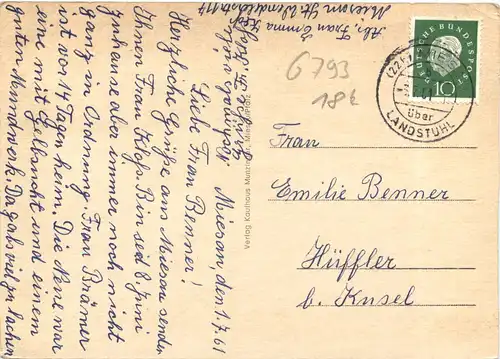 Miesau, den 1.7.61
Liebe Frau Benner!
Herzliche Grüße aus Miesau senden
Ihnen Frau Klos. Bin seit 8 Juni
zuhause aber immer noch nicht
ganz in Ordnung. Frau Brämer
ist vor 14 Tagen heim. Die Neue war
eine mit Gelbsucht und einem
guten Mundwerk. Da gab's viel zu lachen
Abs. Frau Emma
Miesau
Verlag Kaufhaus Munzinger, Miesau/Pfalz
G 793
18k
DEUTSCHE BUNDESPOST
10
(22b)
über
LANDSTUHL
Frau
Emilie Benner
Hüffler
b. Kusel